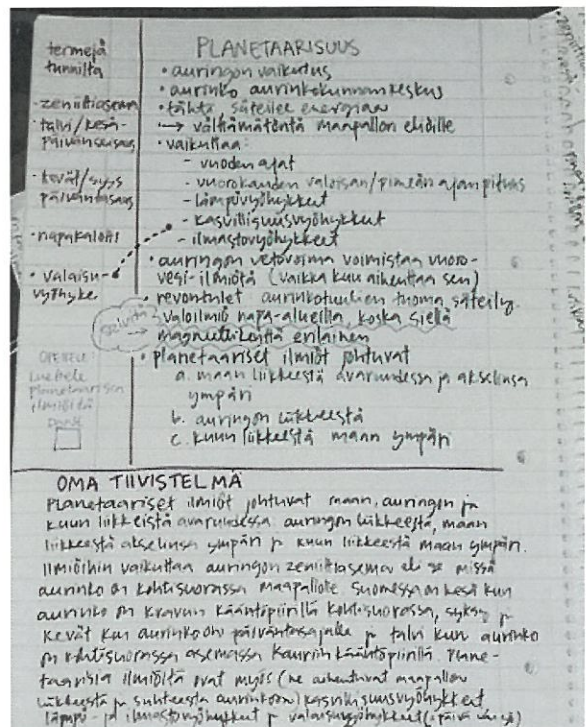 termejä
tunnilta
- zeniittiasema
- talvi/kesä-
päivänseisaus
- kevät/syys
päiväntasaus
- napakalotti
• valaisu-
vyöhyke
OPETTELE
Luettele
planetaarisia
ilmiöitä
PLANETAARISUUS
• auringon vaikutus
• aurinko aurinkokunnan keskus
• tähti säteilee energiaa
→ välttämätöntä maapallon eliöille
• vaikuttaa:
- vuodenajat
- vuorokauden valoisan/pimeän ajan pituus
- lämpövyöhykkeet
- kasvillisuusvyöhykkeet
- ilmastovyöhykkeet
• auringon vetovoima voimistaa vuoro-
vesi-ilmiötä (vaikka kuu aiheuttaa sen)
• revontulet aurinkotuulien tuoma säteily.
valoilmiö napa-alueilla, koska siellä
magneettikenttä erilainen
• planetaariset ilmiöt johtuvat
a. maan liikkeestä avaruudessa ja akselinsa
ympäri
b. auringon liikkeestä
c. kuun liikkeestä maan ympäri
OMA TIIVISTELMÄ
Planetaariset ilmiöt johtuvat maan, auringon ja
kuun liikkeistä avaruudessa: auringon liikkeestä, maan
liikkeestä akselinsa ympäri ja kuun liikkeestä maan ympäri.
Ilmiöihin vaikuttaa auringon zeniittiasema eli se missä
aurinko on kohtisuorassa maapallolle. Suomessa on kesä kun
aurinko on kravun kääntöpiirillä kohtisuorassa, syksy ja
kevät kun aurinko on päiväntasaajalle ja talvi kun aurinko
on kohtisuorassa asemassa kauriin kääntöpiirillä. Plane-
taarisia ilmiöitä ovat myös (ne aiheutuvat maapallon
liikkeestä ja suhteesta aurinkoon) kasvillisuusvyöhykkeet
lämpö- ja ilmastovyöhykkeet ja valaisuvyöhykkeet